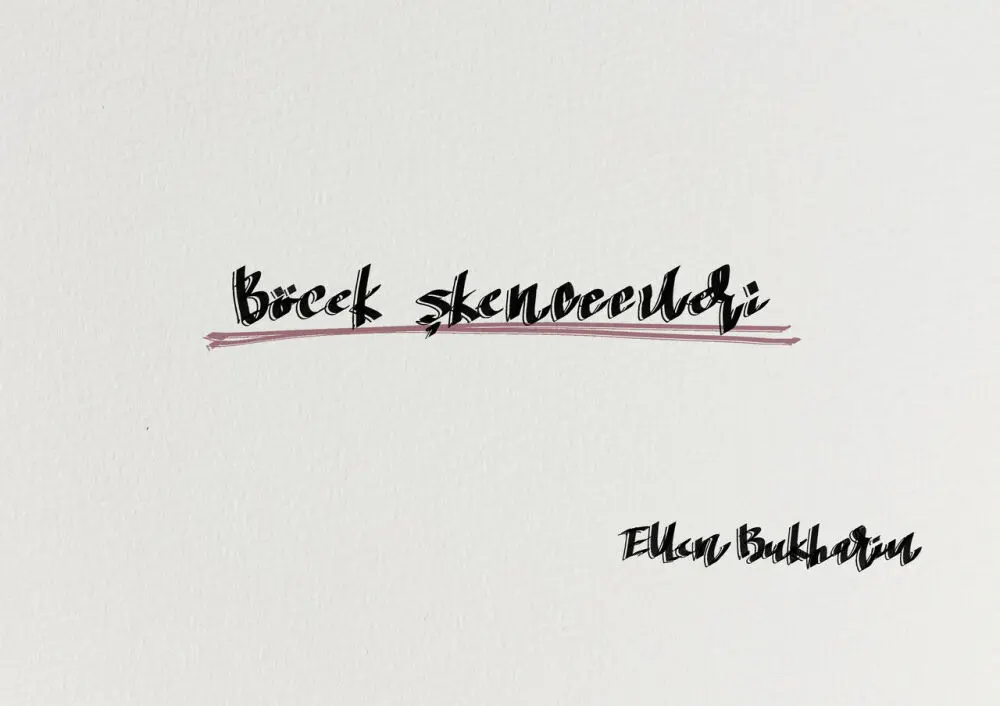 Böcek şkencecileri
Ellen Bukharin